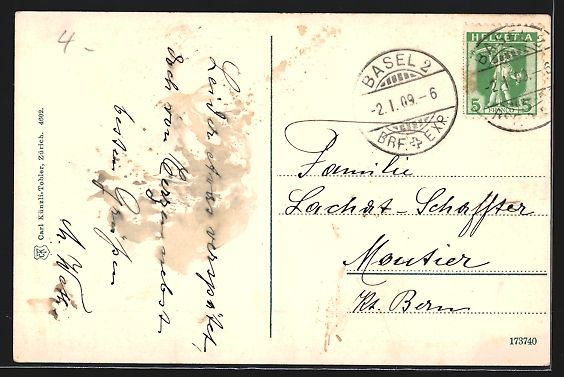 4 -
Leider etwas verspätet,
doch von Herzen nebst
besten Grüßen
Carl Künzli-Tobler, Zürich. 4692.
BASEL 2
-2.I.09.-6
BRF. EXP.
HELVETIA
5 FRANCO 5
Familie
Lachat-Schaffter
Moutier
Kt. Bern
173740